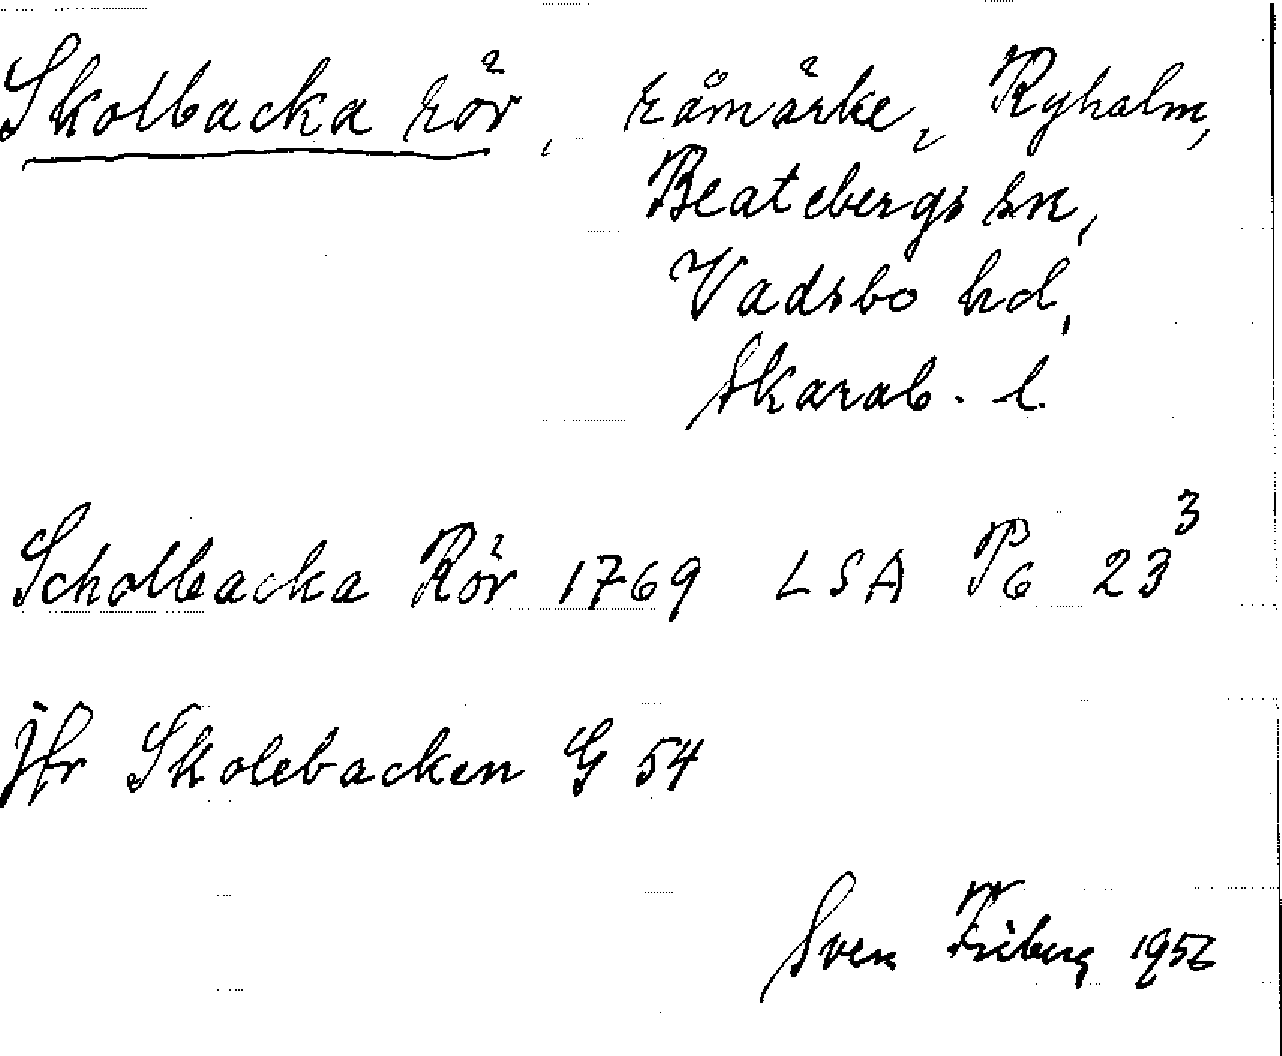 Skolbacka rör, råmärke, Ryholm,
Beatebergs sn,
Vadsbo hd,
Skarab. l.
Scholbacka Rör 1769 LSA P6 23³
Jfr Skolebacken G 54
Sven Friberg 1956